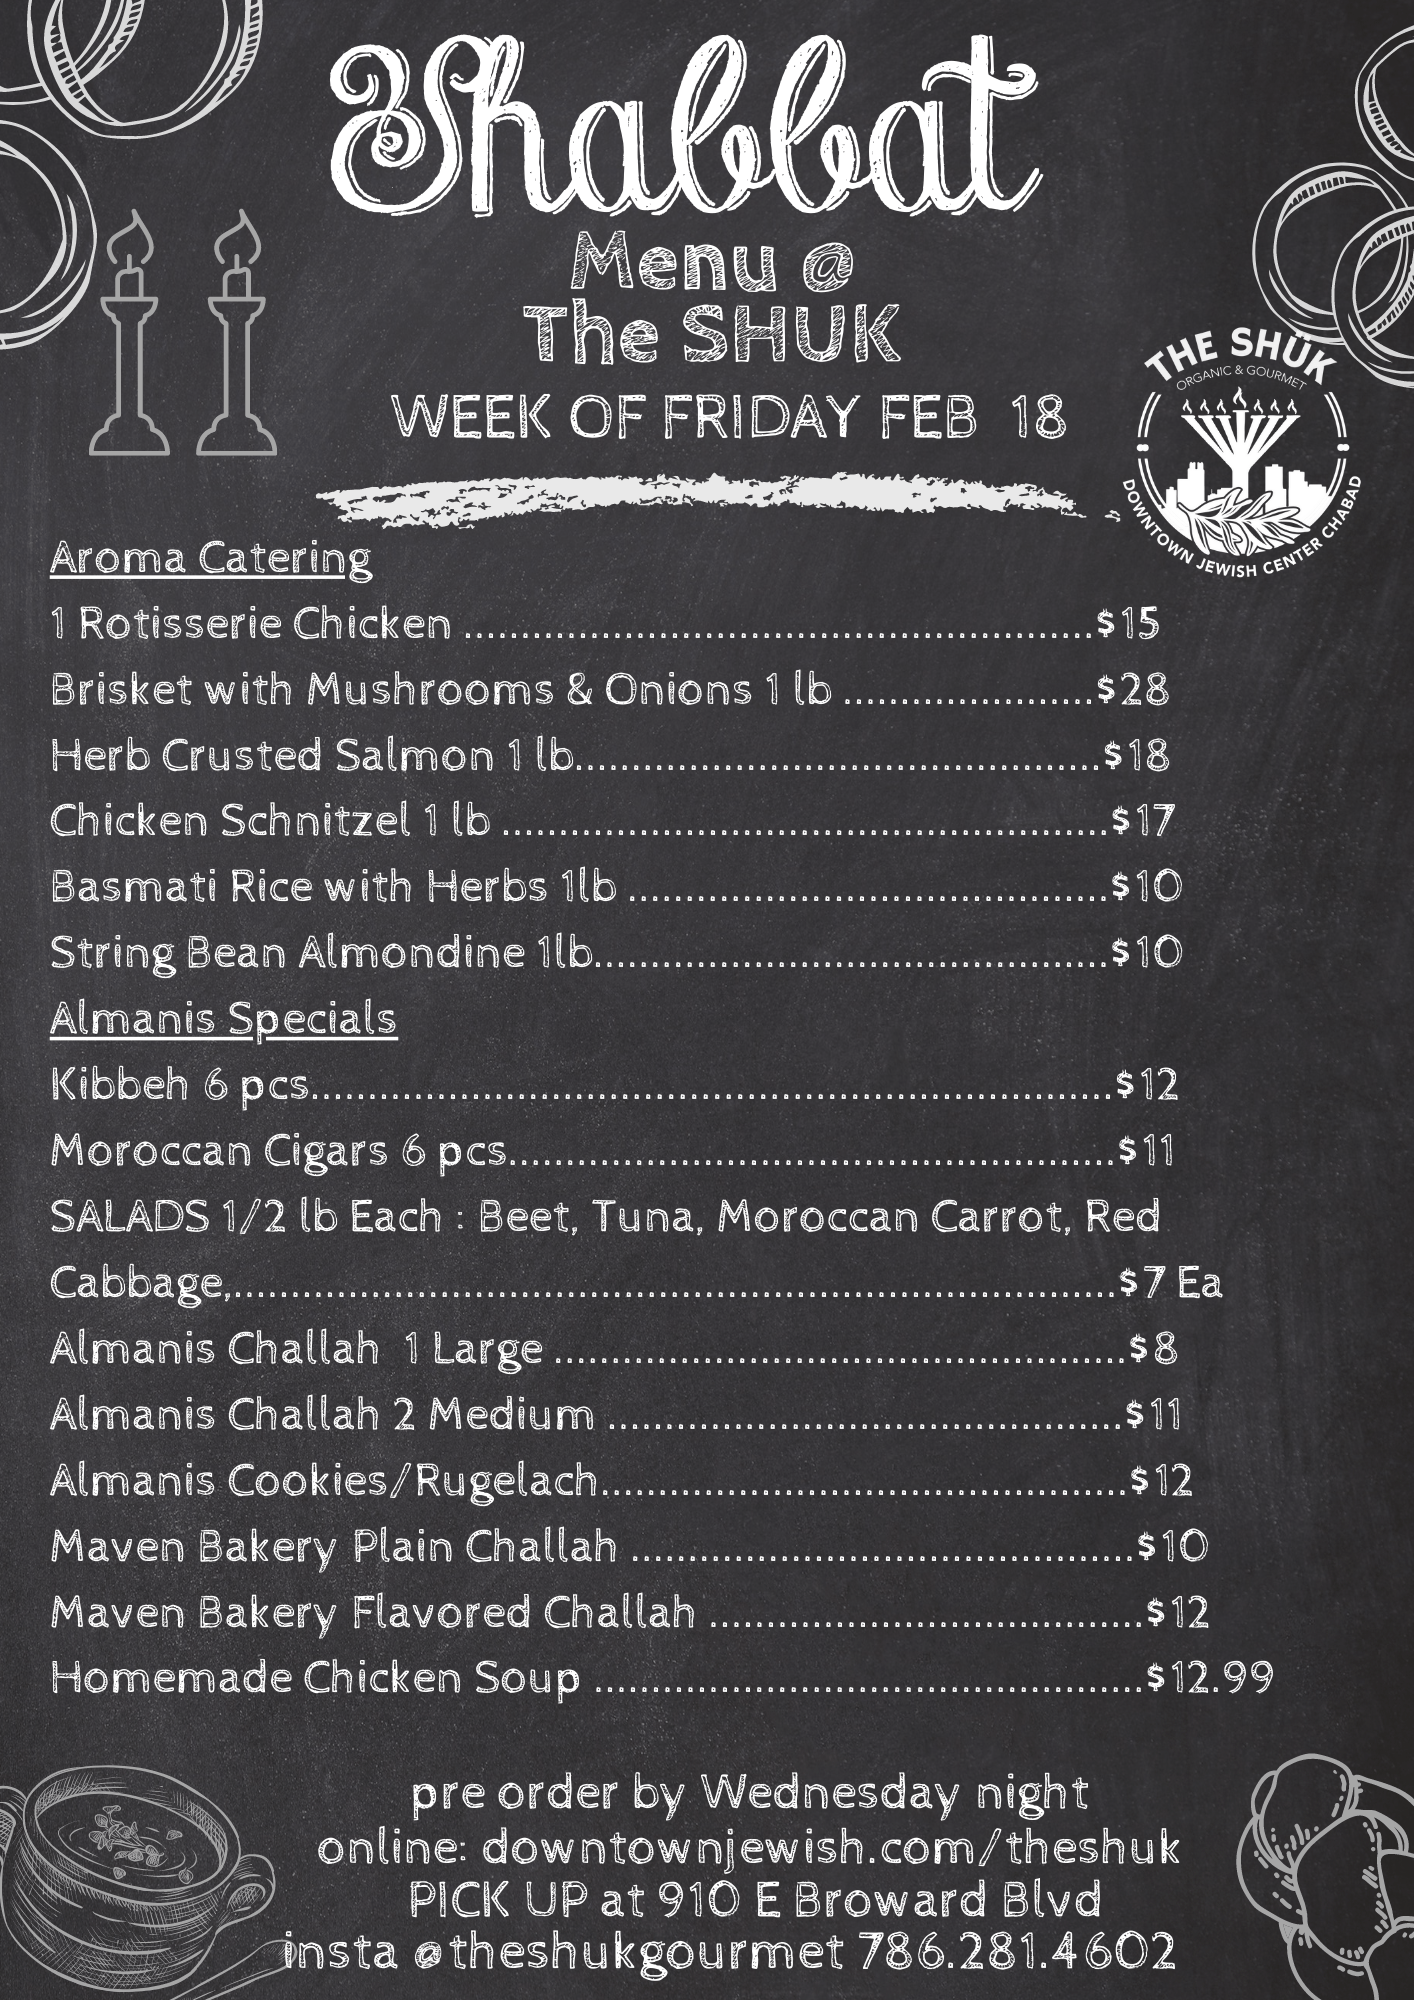 Shabbat
Menu @
The SHUK
WEEK OF FRIDAY FEB 18
THE SHŪK
ORGANIC & GOURMET
DOWNTOWN JEWISH CENTER CHABAD
Aroma Catering
1 Rotisserie Chicken ................................................................$15
Brisket with Mushrooms & Onions 1 lb .........................$28
Herb Crusted Salmon 1 lb.....................................................$18
Chicken Schnitzel 1 lb .............................................................$17
Basmati Rice with Herbs 1lb ................................................$10
String Bean Almondine 1lb....................................................$10
Almanis Specials
Kibbeh 6 pcs.................................................................................$12
Moroccan Cigars 6 pcs.............................................................$11
SALADS 1/2 lb Each : Beet, Tuna, Moroccan Carrot, Red
Cabbage,.........................................................................................$7 Ea
Almanis Challah 1 Large ..........................................................$8
Almanis Challah 2 Medium ....................................................$11
Almanis Cookies/Rugelach.....................................................$12
Maven Bakery Plain Challah ...................................................$10
Maven Bakery Flavored Challah ............................................$12
Homemade Chicken Soup ........................................................$12.99
pre order by Wednesday night
online: downtownjewish.com/theshuk
PICK UP at 910 E Broward Blvd
insta @theshukgourmet 786.281.4602